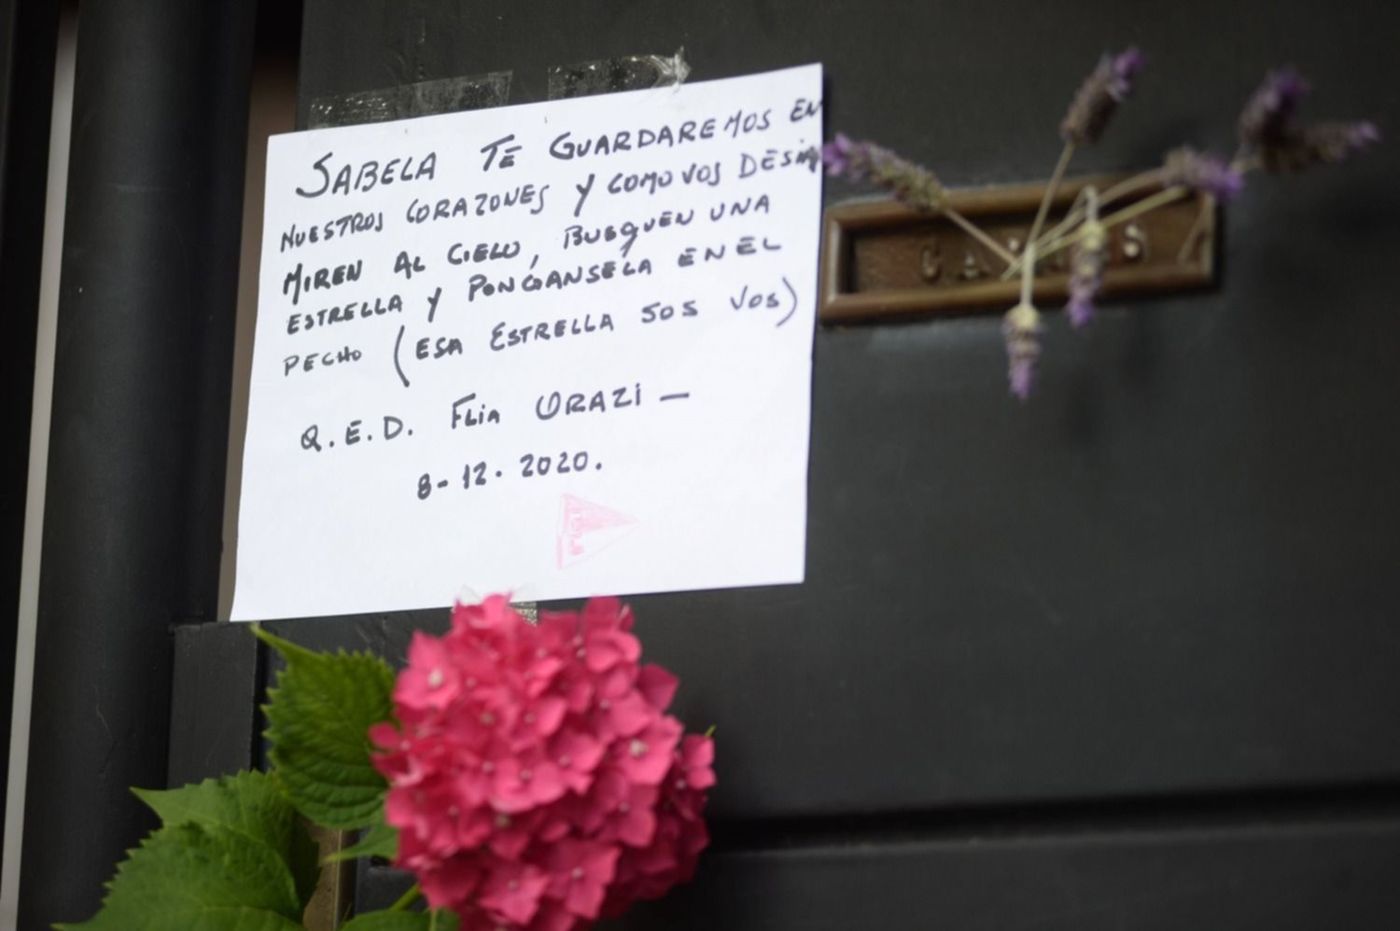 SABELA TE GUARDAREMOS EN
NUESTROS CORAZONES Y COMO VOS DESIA
MIREN AL CIELO, BUSQUEN UNA
ESTRELLA Y PONGANSELA EN EL
PECHO (ESA ESTRELLA SOS VOS)
Q.E.D. FLIA ORAZI —
8-12-2020.
CARTAS